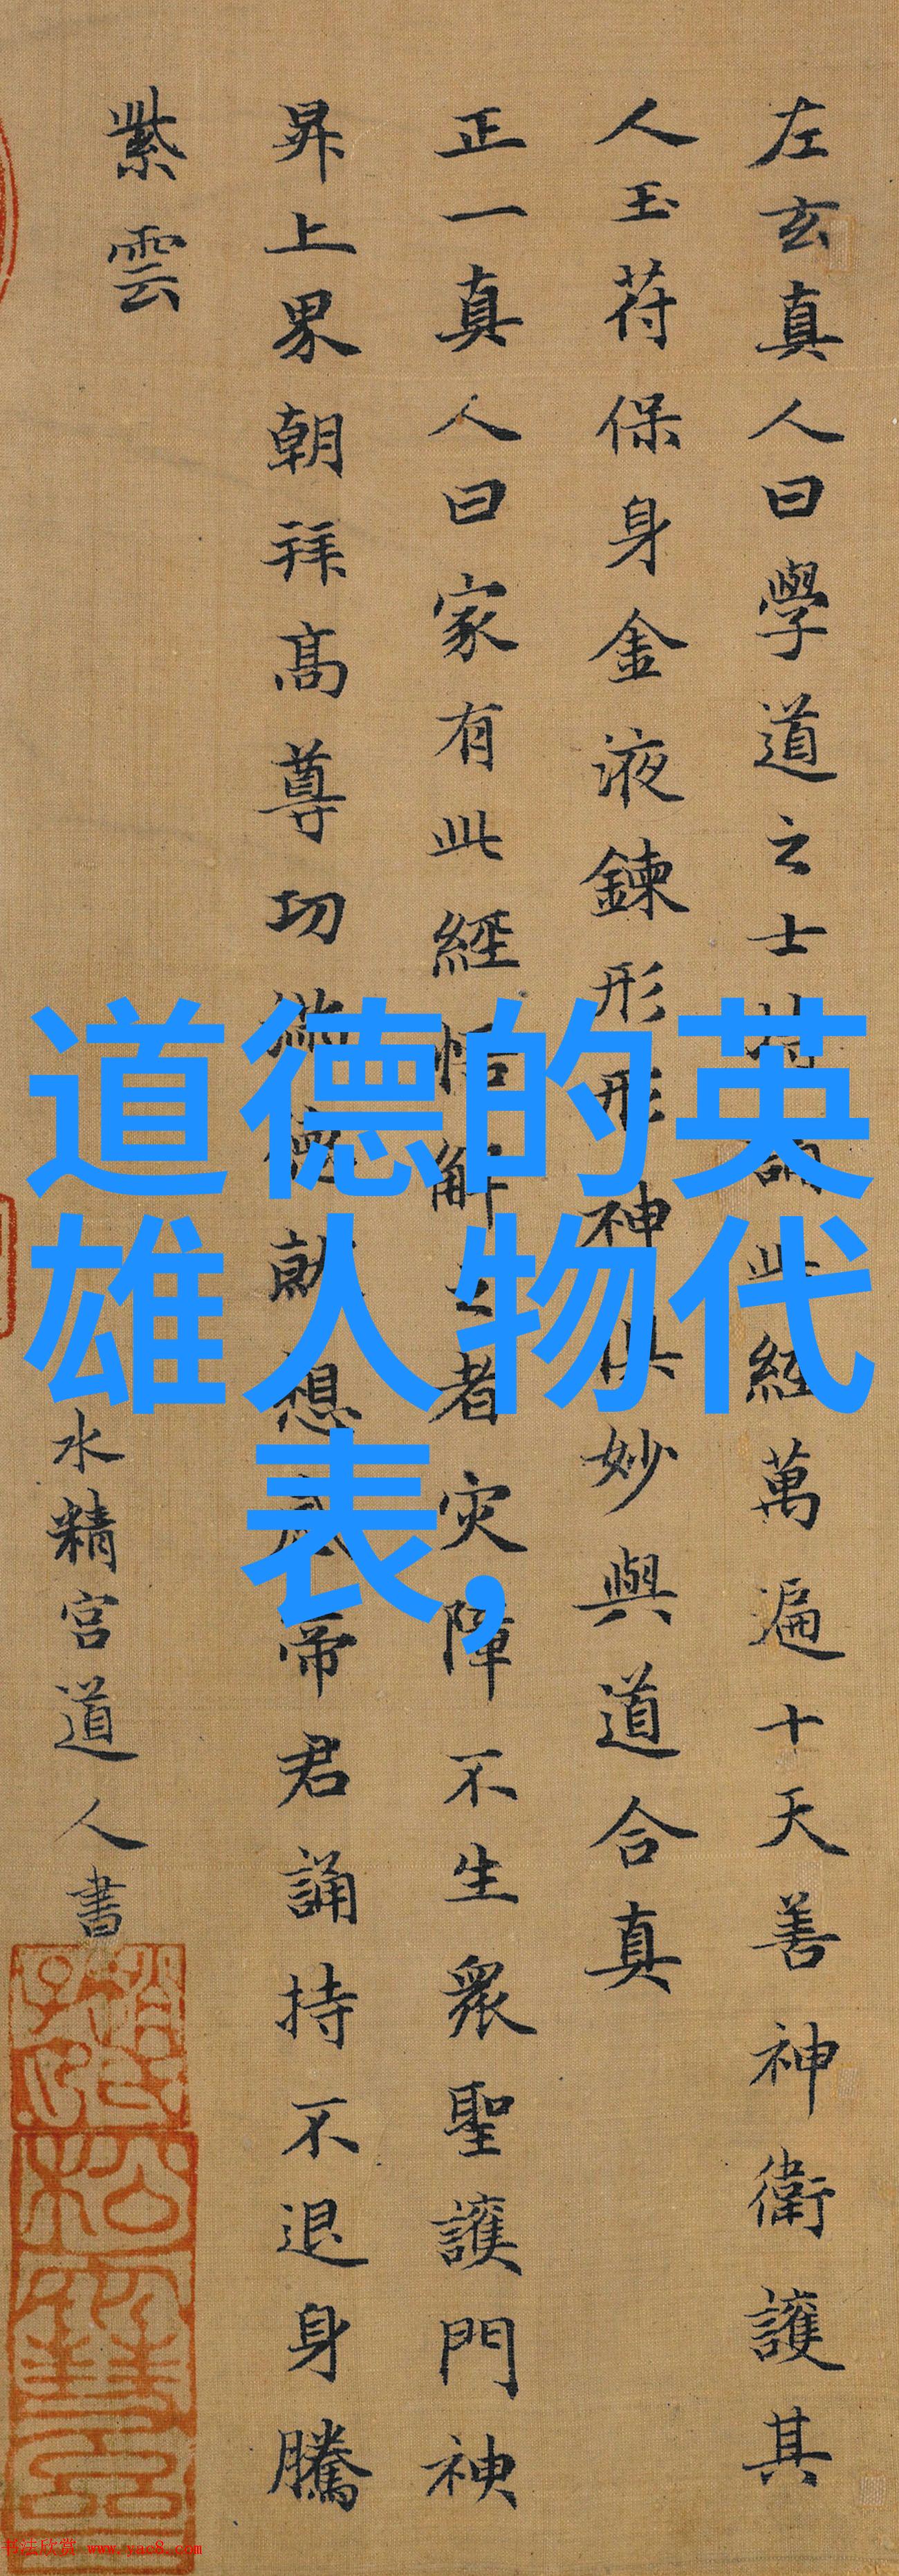 左玄真人曰學道之士持誦此經萬遍十天善神衛護其
人玉符保身金液鍊形形神俱妙與道合真
正一真人曰家有此經悟解之者灾障不生眾聖護門神
昇上界朝拜高尊功滿德就想感帝君誦持不退身騰
紫雲
水精宮道人書
道德的英
雄人物代
表,
書法欣赏 www.yac8.com